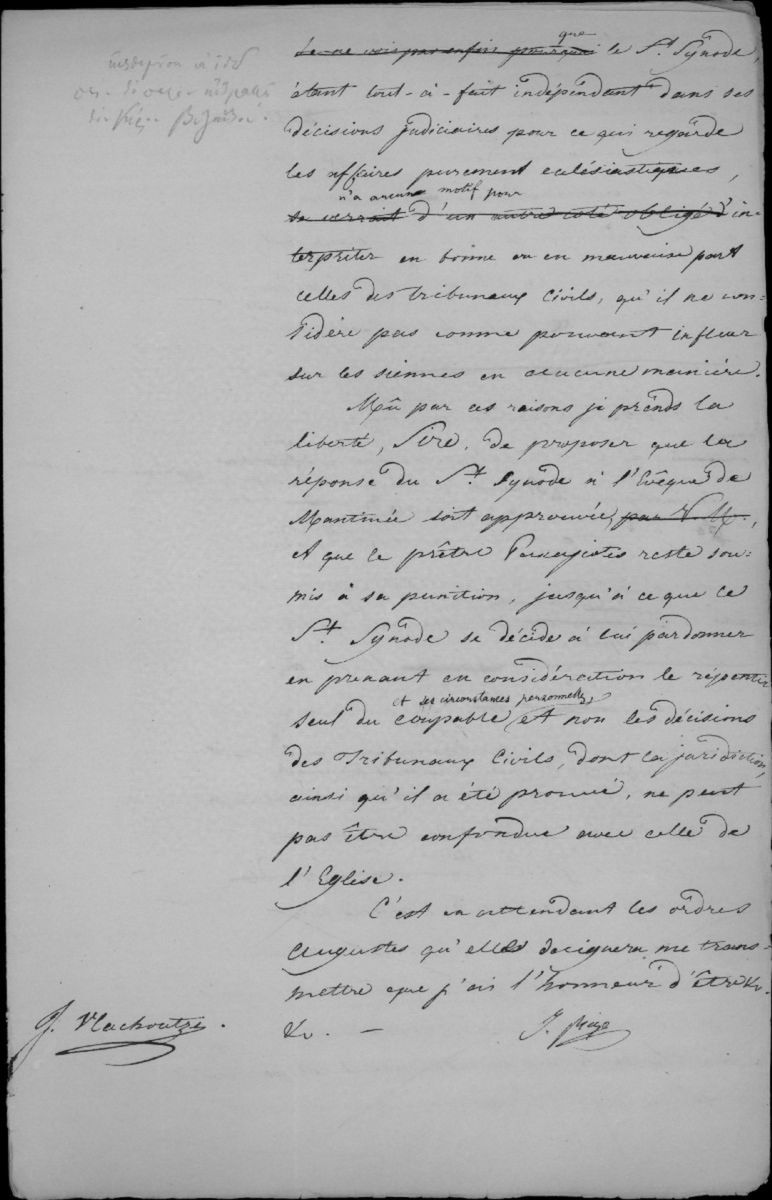 Je ne vois pas enfin pourquoi que le St. Synode,
étant tout-à-fait indépendant dans ses
décisions judiciaires pour ce qui regarde
les affaires purement eclésiastiques,
n'a aucun motif pour
se verrait d'un autre coté obligé d'in=
terprêter en bonne ou en mauvaise part
celles des tribunaux Civils, qu'il ne con=
sidère pas comme pouvant influer
sur les siennes en aucune manière.
Mû par ces raisons je prends la
liberté, Sire, de proposer que la
réponse du St. Synode à l'Evêque de
Mantinée soit approuvée, par V. M.,
et que le prêtre reste sou=
mis à sa punition, jusqu'à ce que le
St. Synode se décide à lui pardonner
en prenant en considération le répentir
et ses circonstances personnelles
seul du coupable et non les décisions
des Tribunaux Civils, dont la jurisdiction,
ainsi qu'il a été prouvé, ne peut
pas être confondue avec celle de
l'Eglise.
C'est en attendant les ordres
augustes qu'elle daignera me trans=
mettre que j'ai l'honneur d'être &c.
&c. —
J.